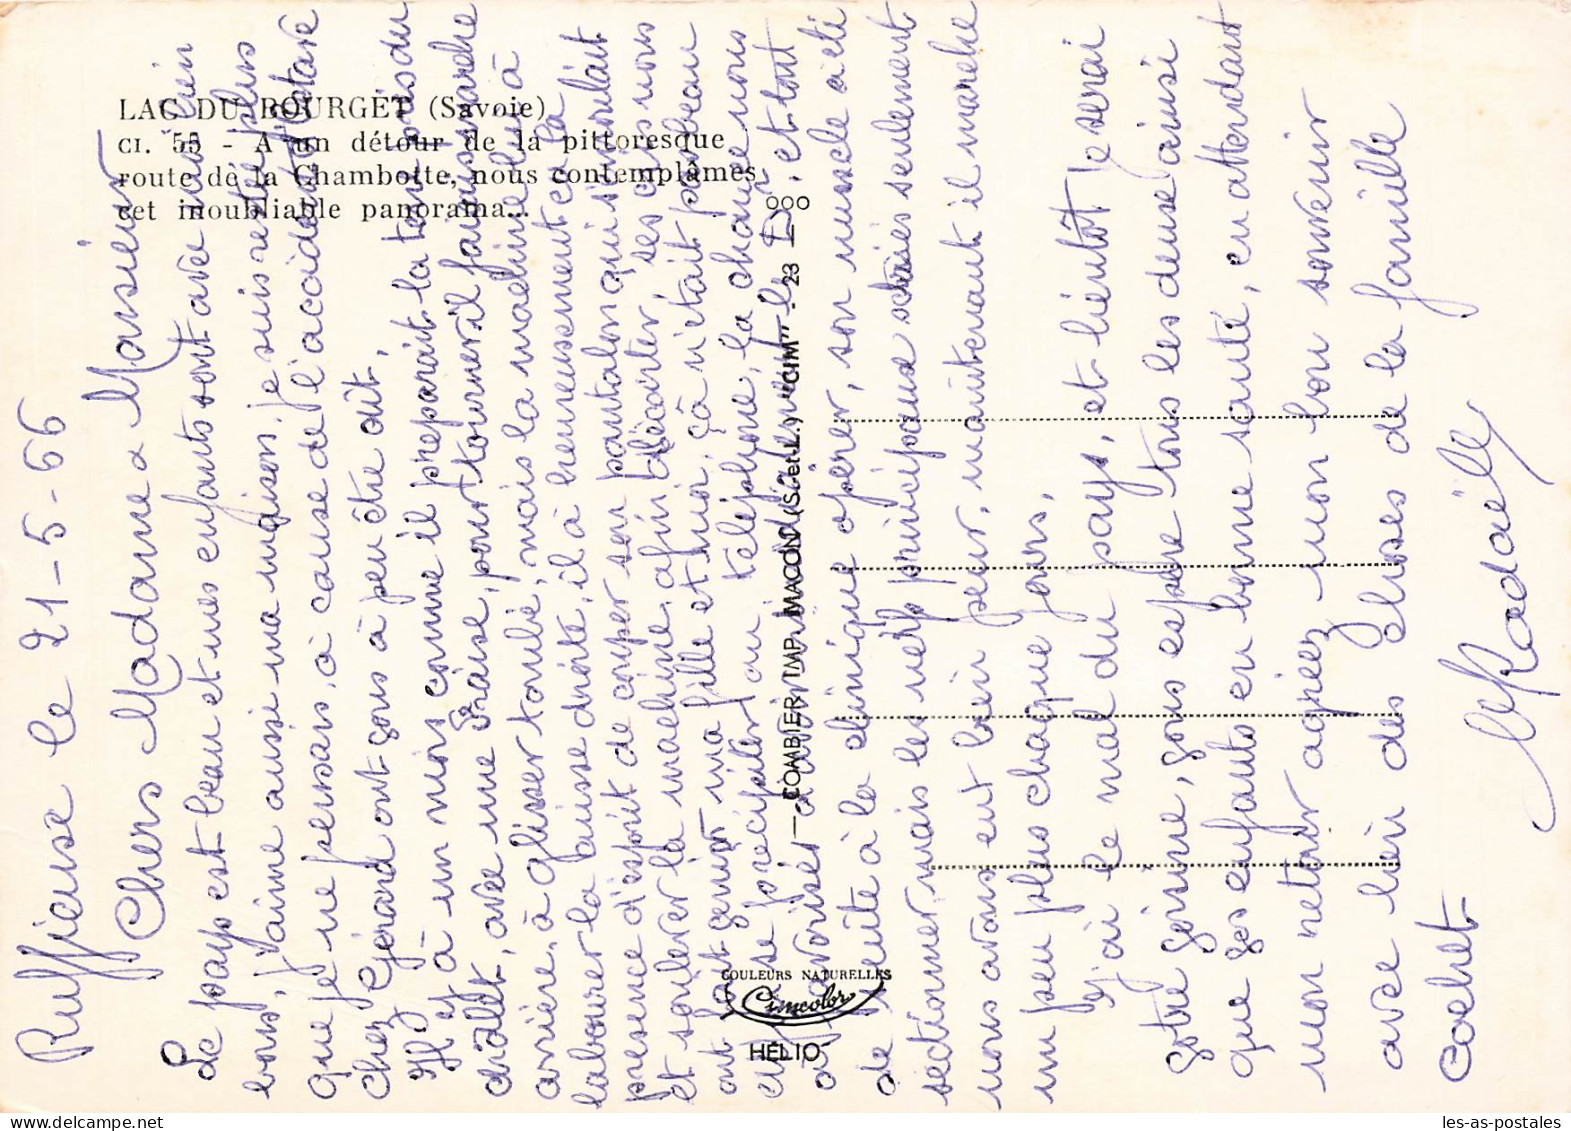 LAC DU BOURGET (Savoie)
CI. 55 - A un détour de la pittoresque
route de la Chambotte, nous contemplâmes
cet inoubliable panorama...
Ruffieuse le 21-5-66
Chers Madame & Monsieur
Le pays est beau et mes enfants sont avec moi bien
bons, j'aime aussi ma maison, je suis resté plus
que je ne pensais, à cause de l'accident
chez Gérard ont gous à peu être oût,
Il y à un mois comme il preparait la terre près du
chalet, avec une Fraise, pour tourner il faut marche
arrière, à glisser tombé, mais la machine lui à
labourer la cuisse droite, il à heureusement eu la
presence d'esprit de couper son pantalon qui s'enroulait
et soulever la machine, afin d'écarter, ses cris nous
ont fait genir ma fille et moi, çà n'était pas beau
se précipitent au téléphone, la chance nous
a favorisér
de suite à la clinique opérer, son muscle a été
sectionner mais les nerfs principaux seulement
nous avons eut bien peur, maintenant il marche
un peu plus chaque jours,
j'ai le mal du pays, et bientôt je serai
gotre goisine, gous espere tous les deuse ainsi
que ges enfants en bonne santé, en attendant
mon retour agriez mon bon souvenir
avec bien des choses de la famille
Cochet
COMBIER IMP. MACON (S.-et-L.) "CIM" - 23 -
COULEURS NATURELLES
Cimcolor
HÉLIO
les-as-postales